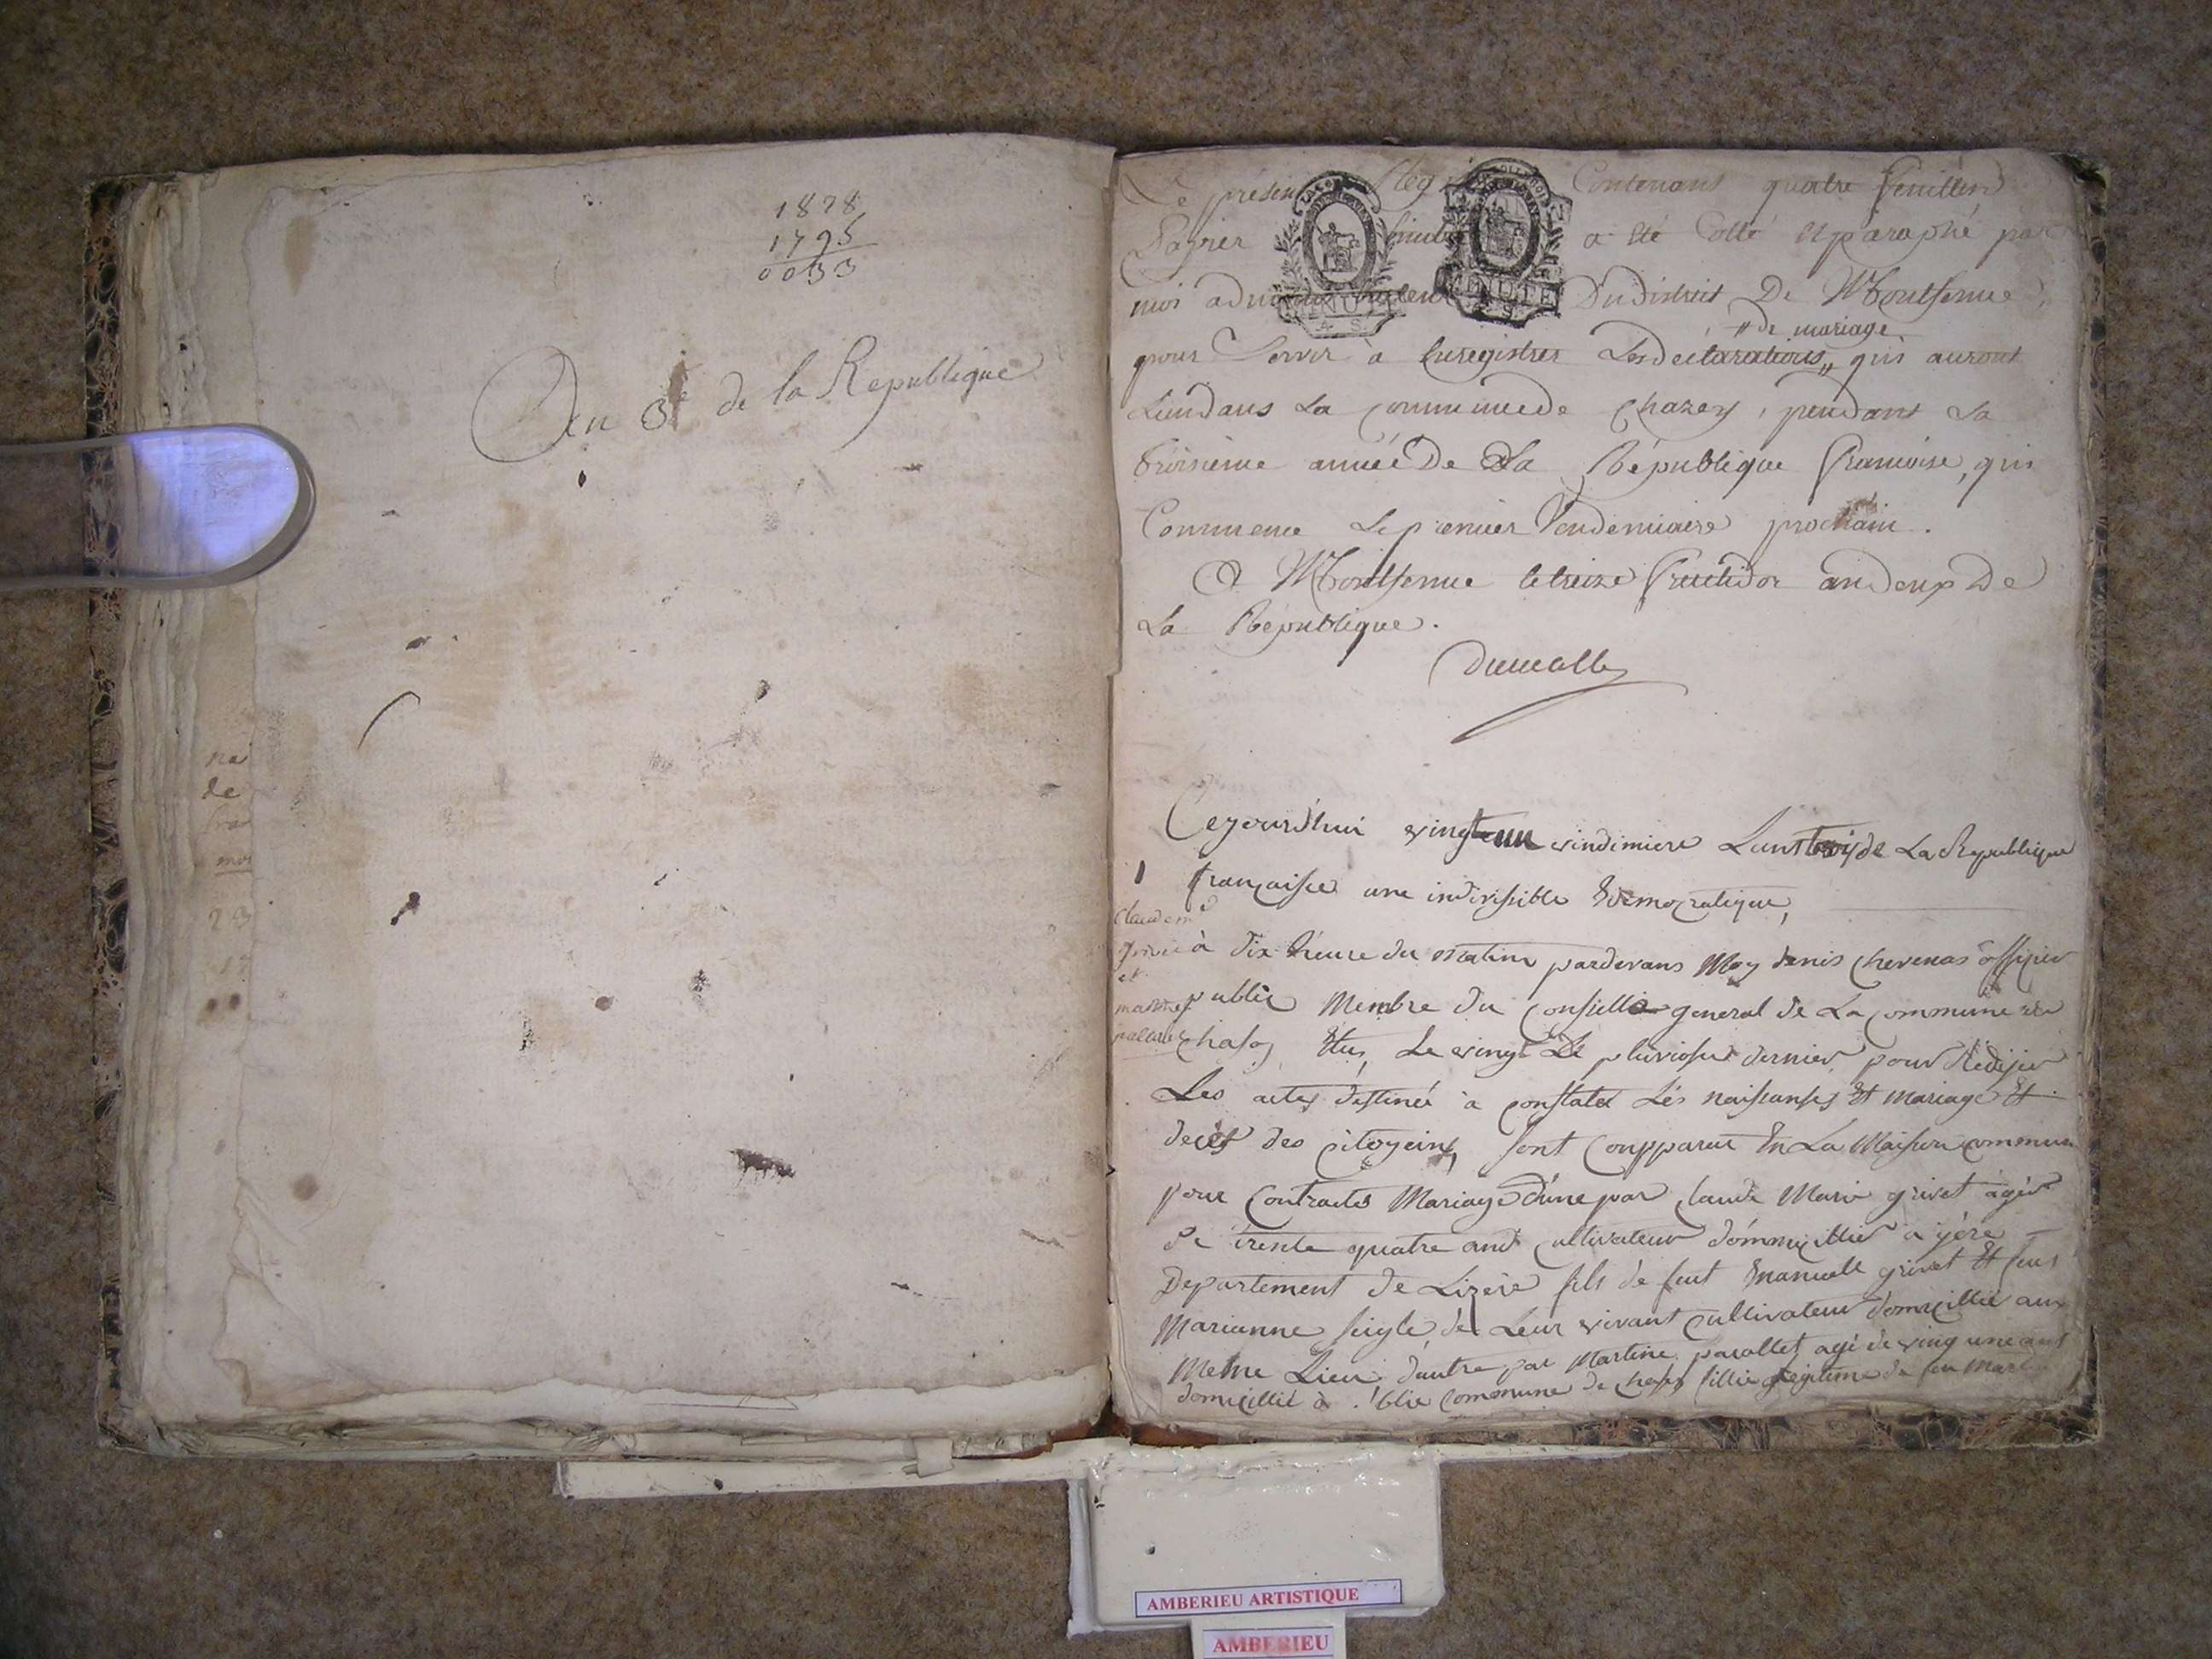 1828
1795
0033
An 3e de la Republique
na
de
mo
Le présent Contenant quatre feuillets
Papier a été Cotté et paraphé par
moi Du district De Montferme,
" de mariage
pour Servir à Enregistrer Les déclarations " qui auront
Lieu dans La commune de Chazey, pendant La
troisieme année De La République francoise, qui
Commence Le premier Vendemiaire prochain.
A Montferme le treize fructidor an deux De
La République.
MINUTE
MINUTE
Cejourd'hui vingt un vindimiere Lans trois de La Republique
1 françaisse une indivissible Et democratique,
Claude m
grivet à dix heure du matin pardevans Moy denis chevenas officier
et
martine public Membre du Conseille general de La Commune de
pacallet Chasey Elus, Le vingt de pluviosse dernier, pour Redijer
Les actes destinés à constater Les naissanses Et mariage Et
deces des citoyeins, sont Conpparut En La Maison commune
pour Contracter Mariage d'une par Claude Marie grivet agée
De trente quatre ans Cultivateur dommicillier a
Departement de Lizere fils de feut Emanuelle grivet Et feus
Marianne de Leur vivant Cultivateur domicillié aux
Meme Lieu, d'autre par Martine pacallet agé de ving une ans
domicillié à Commune de Chasey fillie Legitime de feu
AMBERIEU ARTISTIQUE
AMBERIEU